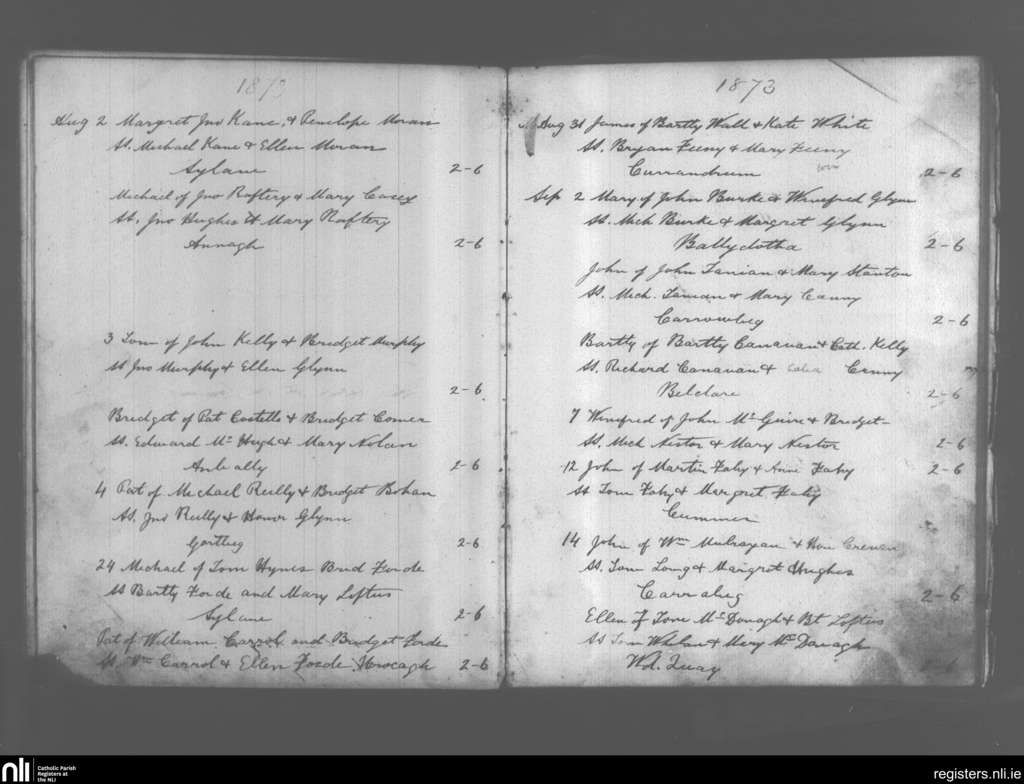 1873
Aug 2 Margret Jno Kane, & Penelope Moran
St. Michael Kane & Ellen Moran
Sylane 2-6
Michael of Jno Raftery & Mary Casey
St. Jno Hughes & Mary Raftery
Annagh 2-6
3 Tom of John Kelly & Bridget Murphy
St Jno Murphy & Ellen Glynn
2-6
Bridget of Pat Costello & Bridget Comer
St. Edward Mc Hugh & Mary Nolan
2-6
4 Pat of Michael Reilly & Bridget Bohan
St. Jno Reilly & Honor Glynn
Gortbeg 2-6
24 Michael of Tom Hynes Brid Forde
St Bartly Forde and Mary Loftus
Sylane 2-6
Pat of William Carrol and Bridget Forde
St. Wm Carrol & Ellen Forde 2-6
1873
Aug 31 James of Bartly Wall & Kate White
St. Bryan Feeny & Mary Feeny
Currandrum 2-6
Sep 2 Mary of John Burke & Winefred Glynn
St. Mich Burke & Margret Glynn
Ballyclotha 2-6
John of John Lanian & Mary Stanton
St. Mich. Lanian & Mary Canny
Carrowbeg 2-6
Bartly of Bartly Canavan & Cath. Kelly
St. Richard Canavan & Canny
Belclare 2-6
7 Winifred of John Mc Guire & Bridget-
St. Mich Nestor & Mary Nestor 2-6
12 John of Martin Fahy & Anne Fahy 2-6
St Tom Fahy & Margret Fahy
Cummer
14 John of Wm Mulrayan & Hon
St. Tom Long & Margret Hughes
Carrabeg 2-6
Ellen of Tom Mc Donagh & Bt Loftus
St Tom Whelan & Mary Mc Donagh
Wd. Quay
nli
Catholic Parish
Registers at
the NLI
registers.nli.ie